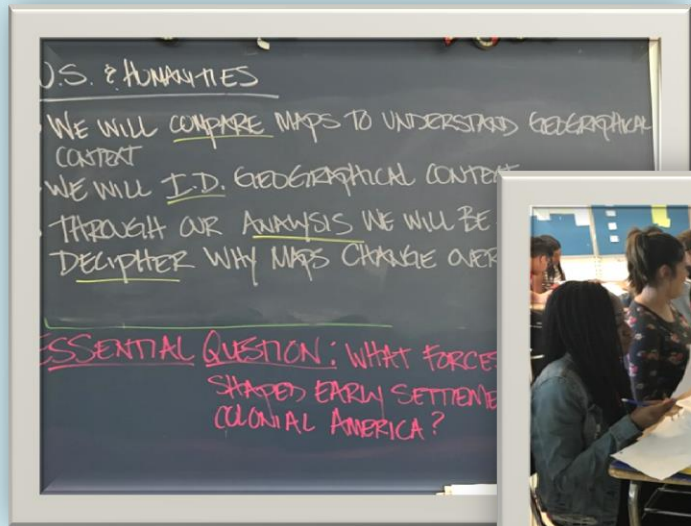 U.S. & HUMANITIES
WE WILL COMPARE MAPS TO UNDERSTAND GEOGRAPHICAL
CONTEXT
WE WILL I.D. GEOGRAPHICAL CONTEXT
THROUGH OUR ANALYSIS WE WILL BE
DECIPHER WHY MAPS CHANGE OVER
ESSENTIAL QUESTION: WHAT FORCES
SHAPED EARLY SETTLEME
COLONIAL AMERICA?